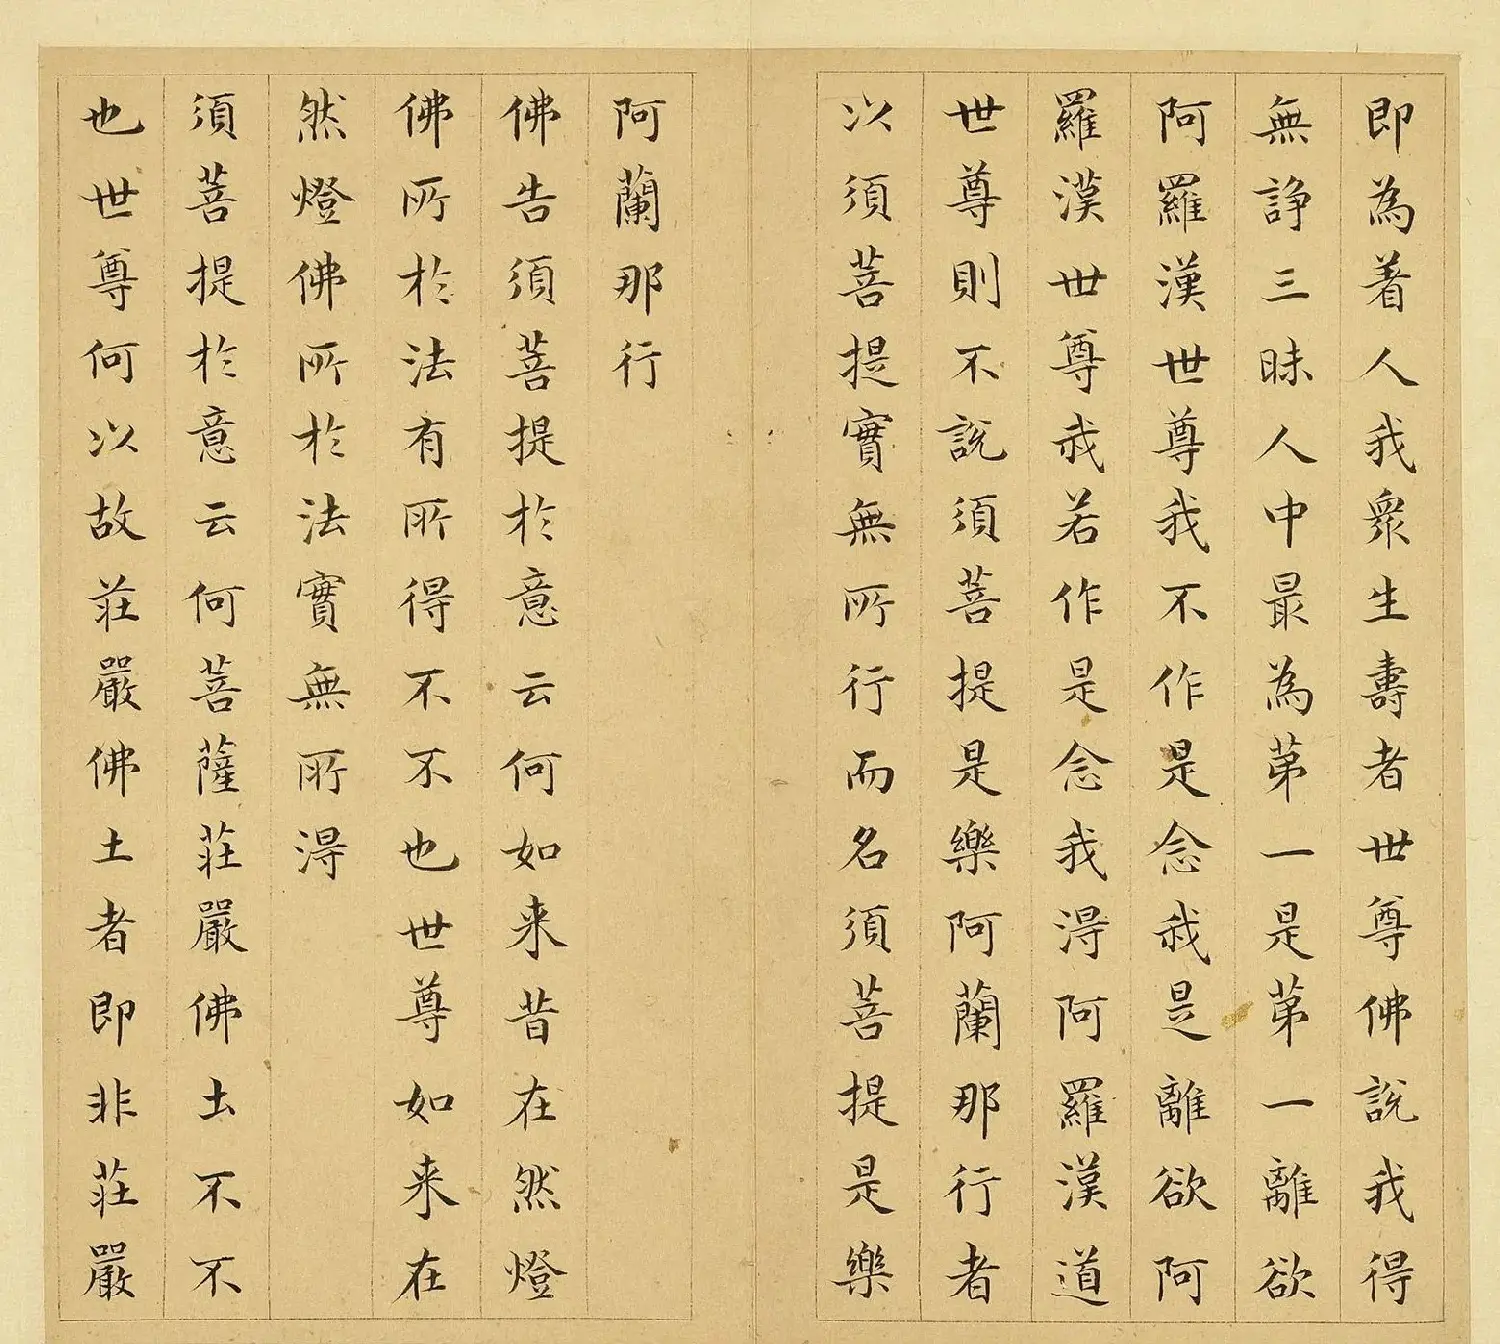 即為着人我衆生壽者世尊佛說我得
無諍三昧人中最為苐一是苐一離欲
阿羅漢世尊我不作是念我是離欲阿
羅漢世尊我若作是念我淂阿羅漢道
世尊則不說須菩提是樂阿蘭那行者
以須菩提實無所行而名須菩提是樂
阿蘭那行
佛告須菩提於意云何如来昔在然燈
佛所於法有所得不不也世尊如来在
然燈佛所於法實無所淂
須菩提於意云何菩薩莊嚴佛土不不
也世尊何以故莊嚴佛土者即非莊嚴